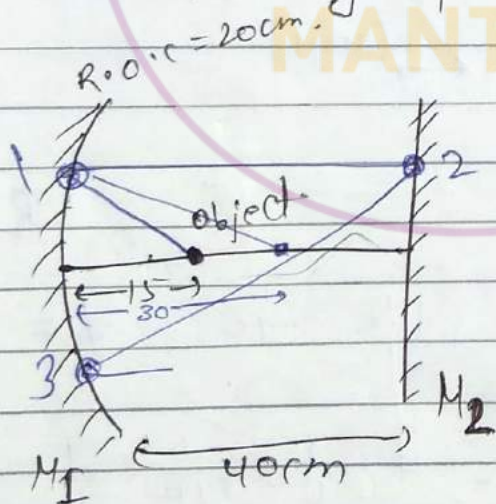 MANT
R.O.C = 20cm.
1
2
object
15
30
3
M1
M2
40cm